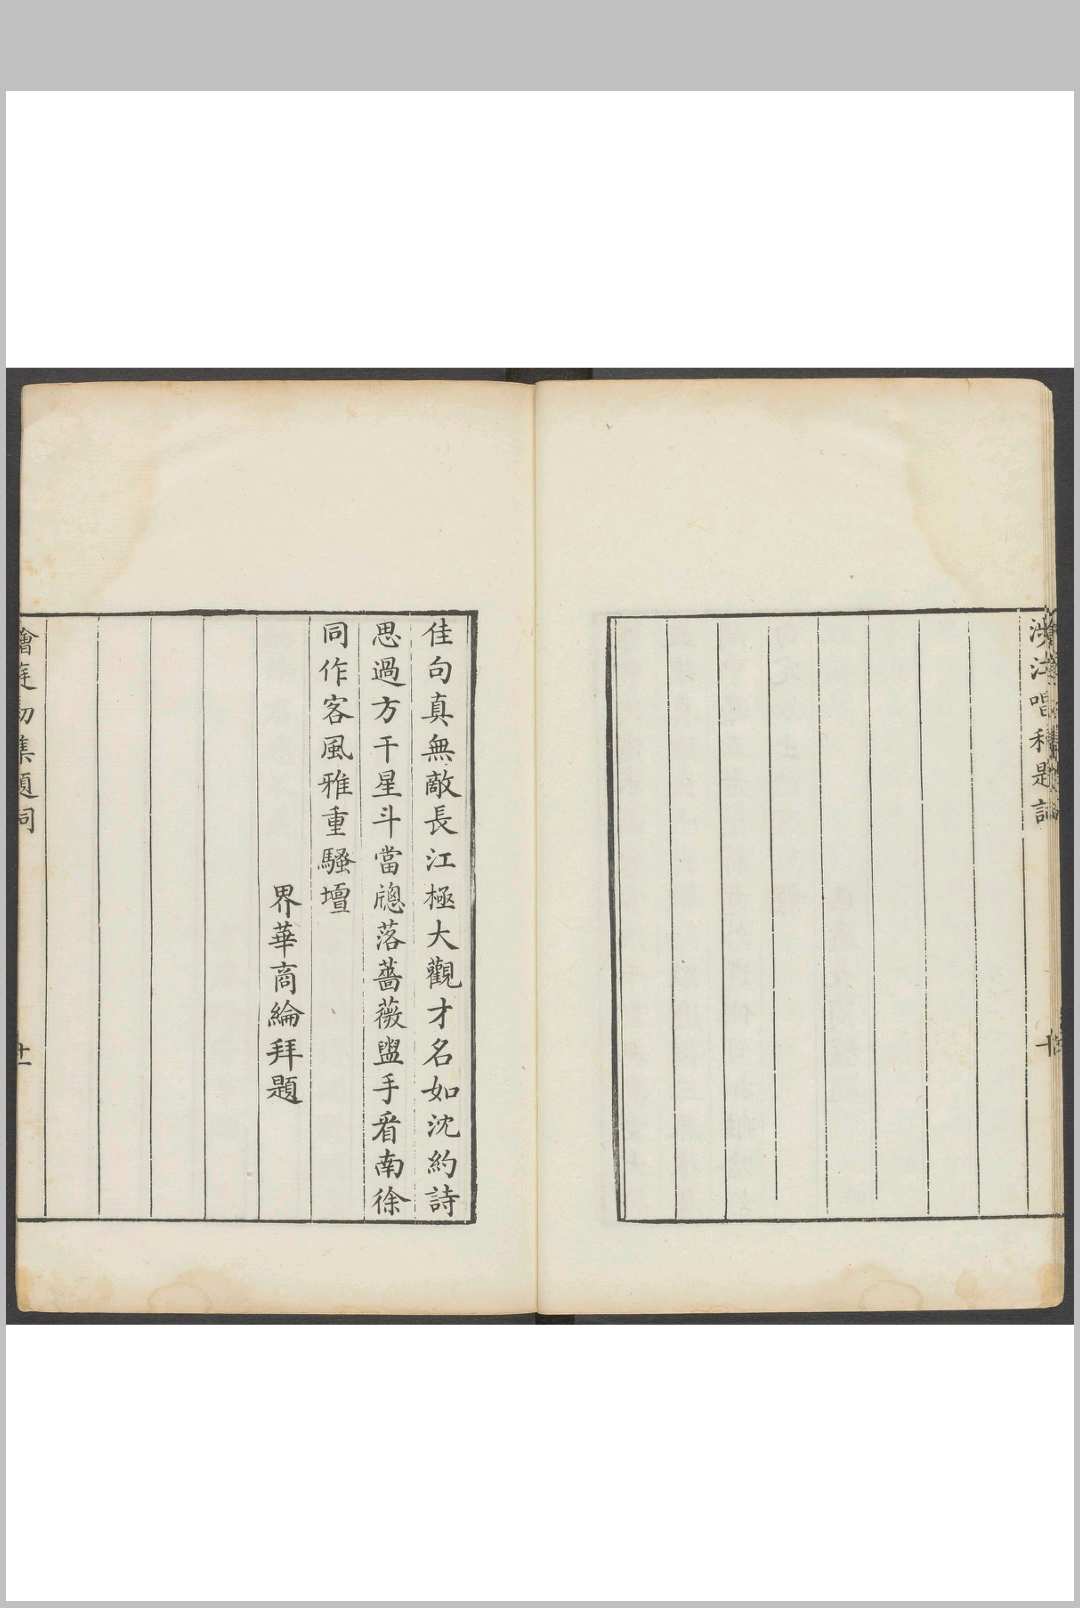 佳句真無敵長江極大觀才名如沈約詩
思過方干星斗當牕落薔薇盥手看南徐
同作客風雅重騷壇
界華商綸拜題
集題詞
十一
唱和題
十